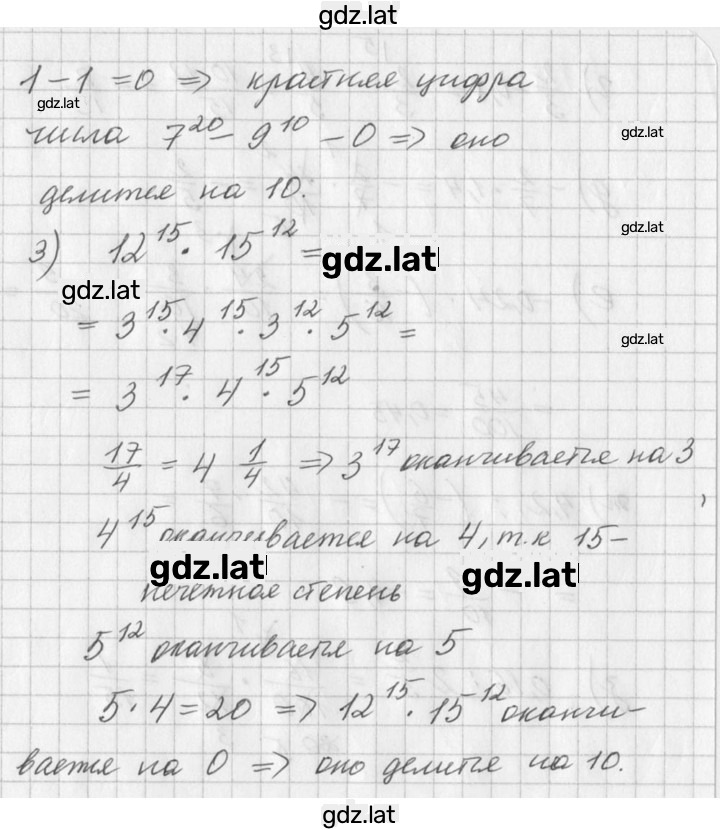 gdz.lat
1 - 1 = 0 => крайняя цифра
gdz.lat
числа 7^20 - 9^10 - 0 => оно
gdz.lat
делится на 10.
gdz.lat
3) 12^15 · 15^12 =
gdz.lat
gdz.lat
= 3^15 · 4^15 · 3^12 · 5^12 =
gdz.lat
= 3^17 · 4^15 · 5^12
17/4 = 4 1/4 => 3^17 оканчивается на 3,
4^15 оканчивается на 4, т.к 15-
gdz.lat
gdz.lat
нечетная степень
5^12 оканчивается на 5
5 · 4 = 20 => 12^15 · 15^12 оканчи-
вается на 0 => оно делится на 10.
gdz.lat